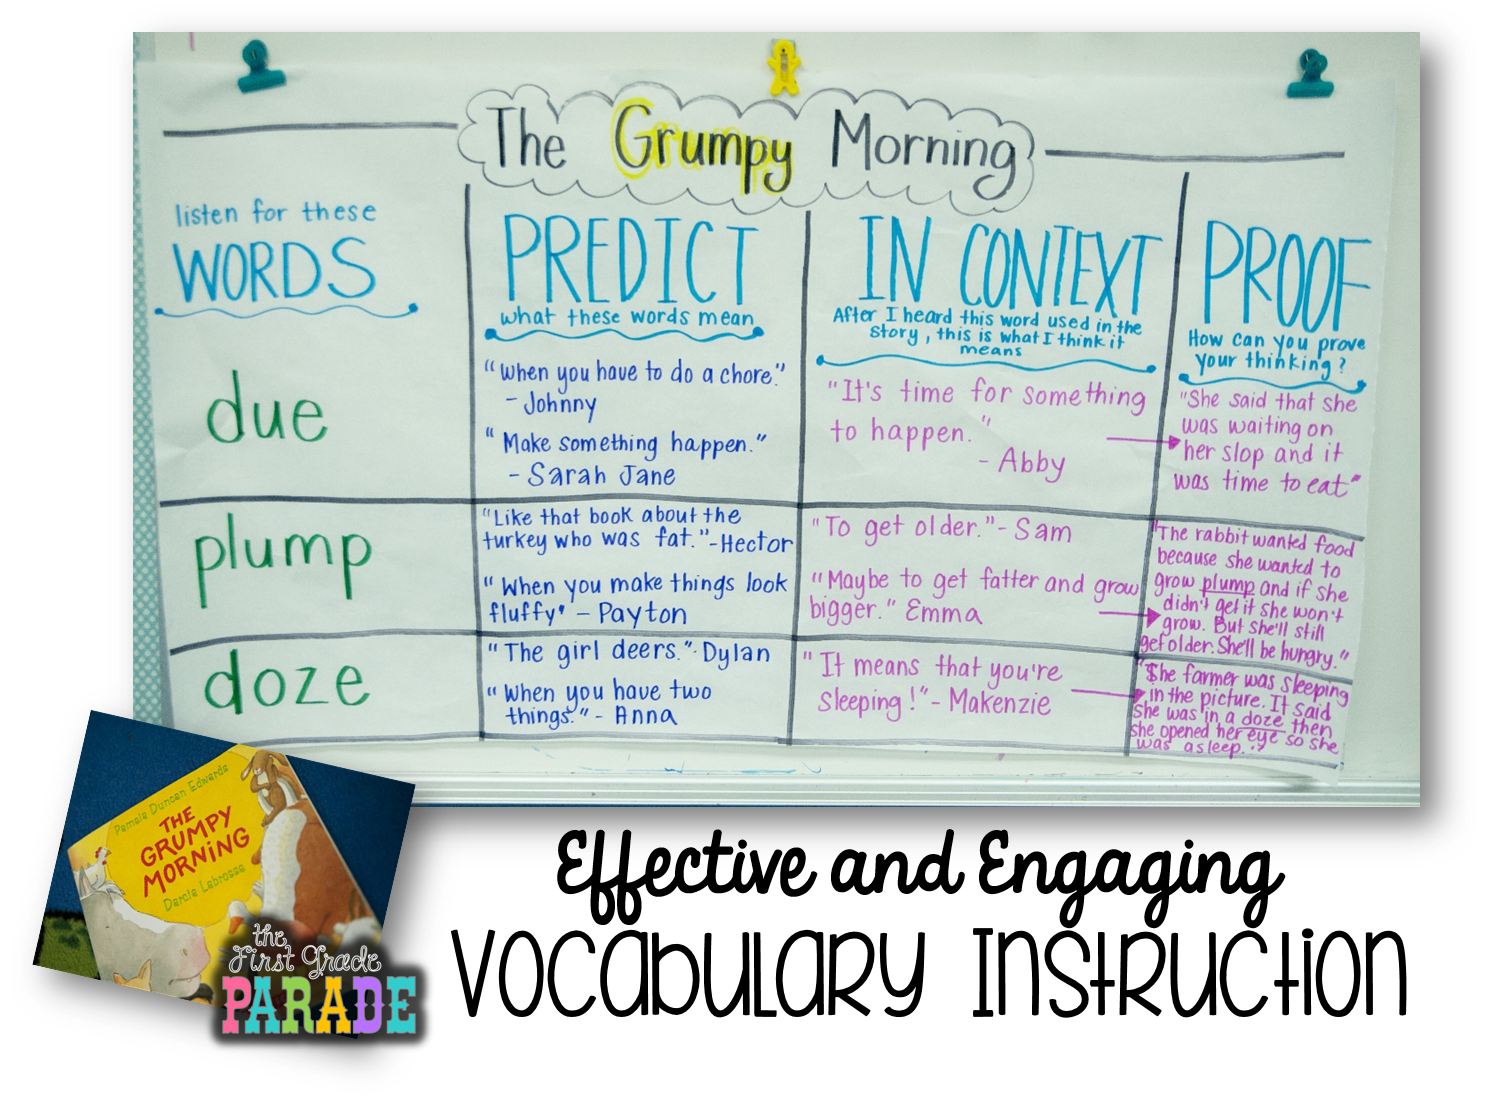 The Grumpy Morning
listen for these
WORDS
PREDICT
what these words mean
IN CONTEXT
After I heard this word used in the
story, this is what I think it
means
PROOF
How can you prove
your thinking?
due
"When you have to do a chore."
- Johnny
"Make something happen."
- Sarah Jane
"It's time for something
to happen."
- Abby
"She said that she
was waiting on
her slop and it
was time to eat"
plump
"Like that book about the
turkey who was fat."-Hector
"When you make things look
fluffy" - Payton
"To get older."- Sam
"Maybe to get fatter and grow
bigger." Emma
"The rabbit wanted food
because she wanted to
grow plump and if she
didn't get it she won't
grow. But she'll still
get older. She'll be hungry."
doze
"The girl deers."- Dylan
"When you have two
things." - Anna
"It means that you're
Sleeping!"- Makenzie
"The farmer was sleeping
in the picture. It said
she was in a doze then
she opened her eye so she
was asleep."
Pamela Duncan Edwards
THE
GRUMPY
MORNING
Darcia Labrosse
the
First Grade
PARADE
Effective and Engaging
Vocabulary Instruction